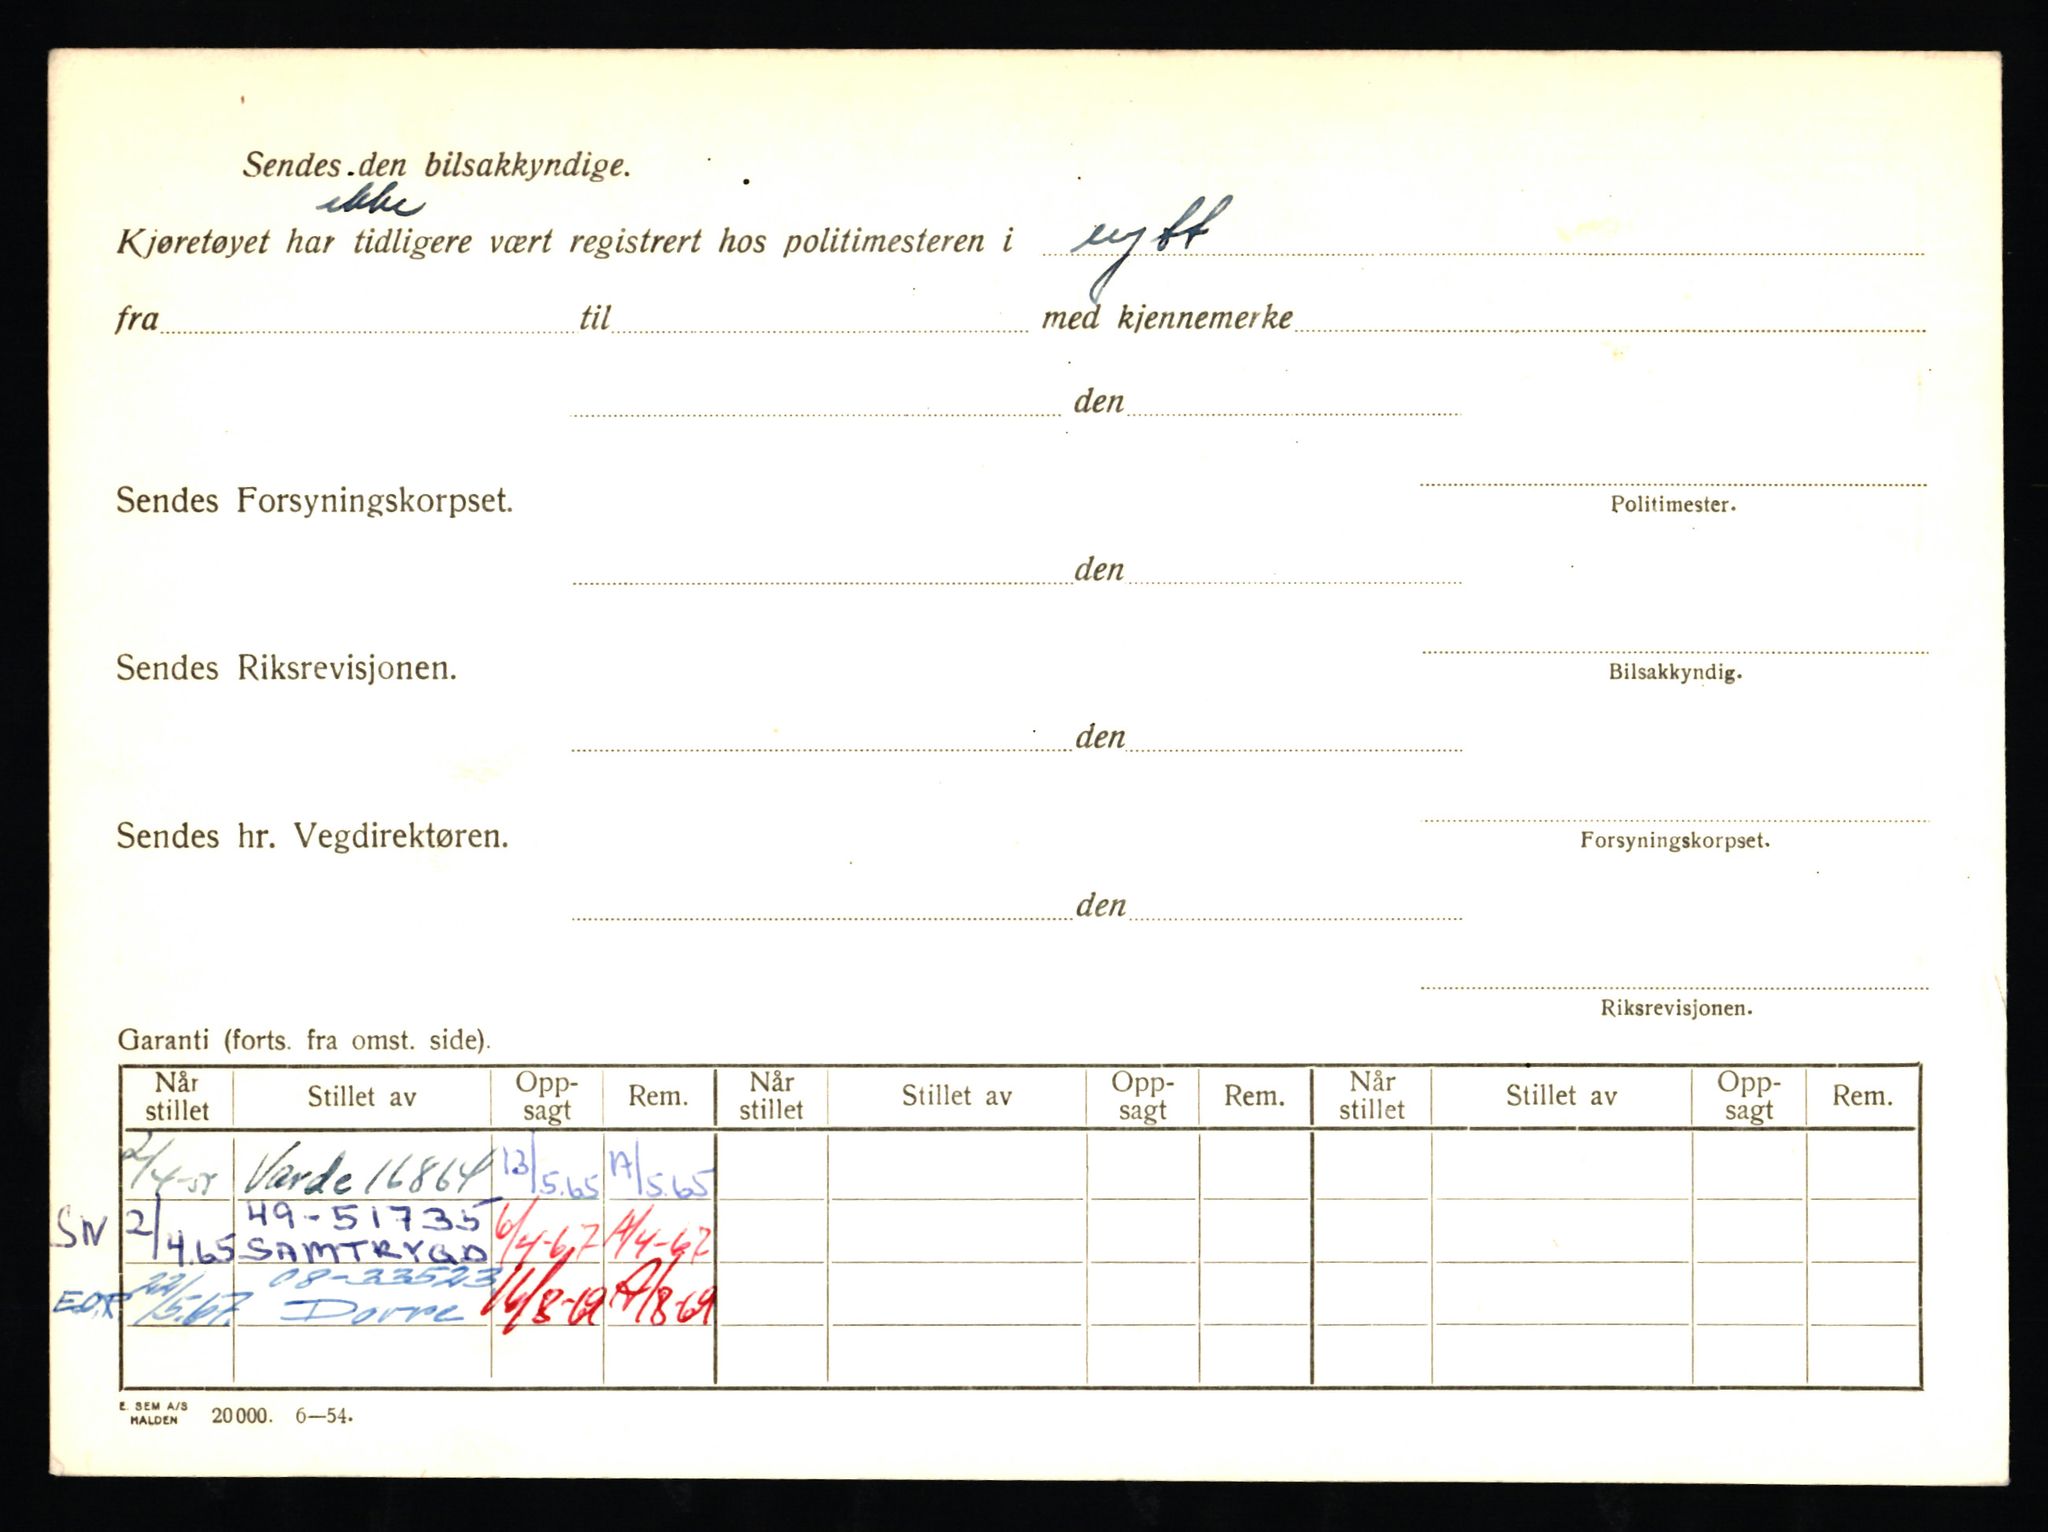 Sendes den bilsakkyndige.
ikke
Kjøretøyet har tidligere vært registrert hos politimesteren i nytt
fra til med kjennemerke
den
Sendes Forsyningskorpset.
Politimester.
den
Sendes Riksrevisjonen.
Bilsakkyndig.
den
Sendes hr. Vegdirektøren.
Forsyningskorpset.
den
Riksrevisjonen.
Garanti (forts. fra omst. side).
Når stillet Stillet av Opp-sagt Rem. Når stillet Stillet av Opp-sagt Rem. Når stillet Stillet av Opp-sagt Rem.
2/4- Varde 16864 13/5.65 A/5.65
49-51735
SN 2/4.65 SAMTRYGD 6/4-67 A/4-67
08-33523
22/5.67. Dovre 16/8-69 A/8-69
E. SEM A/S
HALDEN 20000. 6—54.